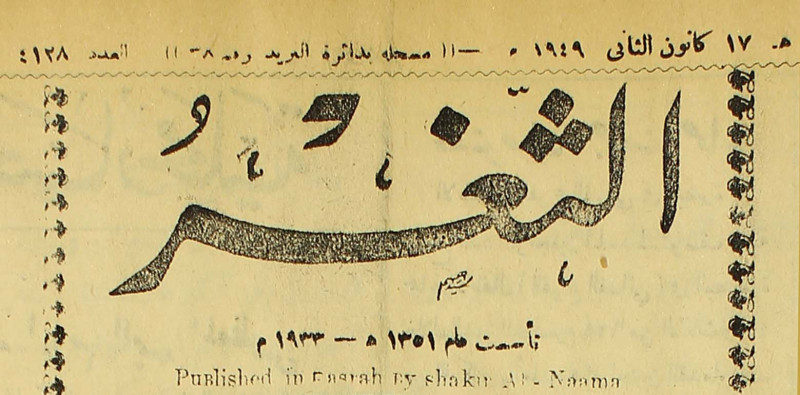 هـ ١٧ كانون الثاني ١٩٤٩ م —(( مسجله بدائرة البريد رقم ٣٨ )) العدد ٤١٢٨
الثغر
تأسست عام ١٣٥١ ه — ١٩٣٣ م
Published in Basrah By shakir Al-Naama